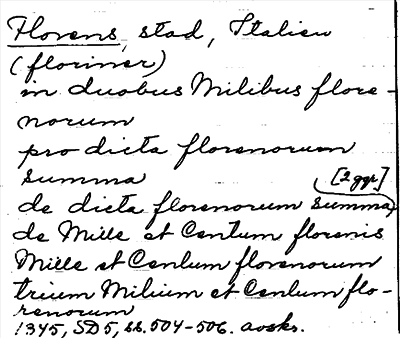 Florens, stad, Italien
(floriner)
in duobus Milibus flore-
norum
pro dicta florenorum
summa [2 ggr]
de dicta florenorum summa,
de Mille et Centum florenis
Mille et Centum florenorum
trium Milium et Centum flo-
renorum
1345, SD5, ss. 504-506. avskr.